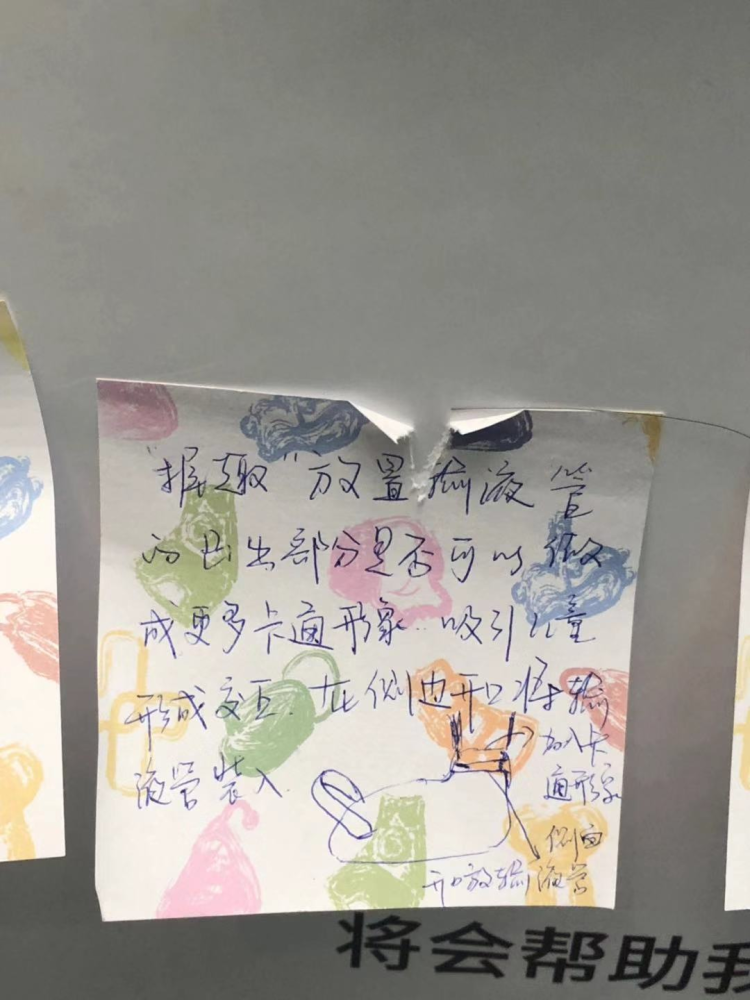 “握趣”放置输液管
的凸出部分是否可以做
成更多卡通形象..吸引儿童
形成交互.在侧边开口将输
液管装入.
加入卡
通形象
侧面
开口放输液管
将会帮助我